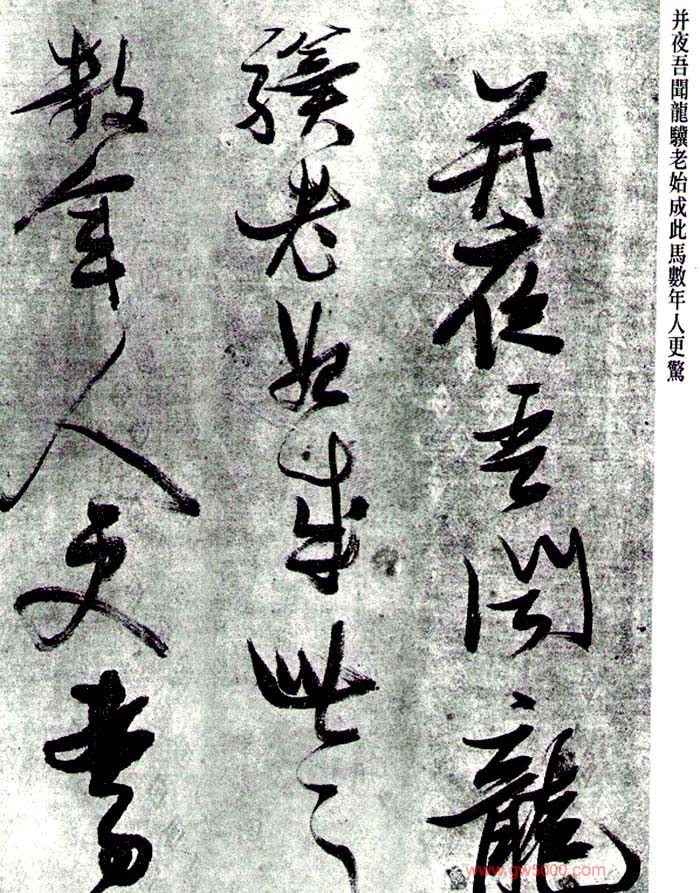 并夜吾聞龍驥老始成此馬數年人更驚
并夜吾聞龍
驥老始成此馬
數年人更驚
www.gw5000.com